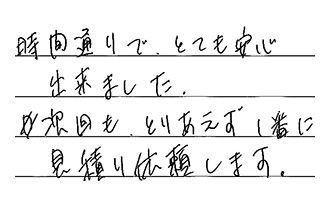 時間通りで、とても安心
出来ました。
次回も、とりあえず1番に
見積り依頼します。